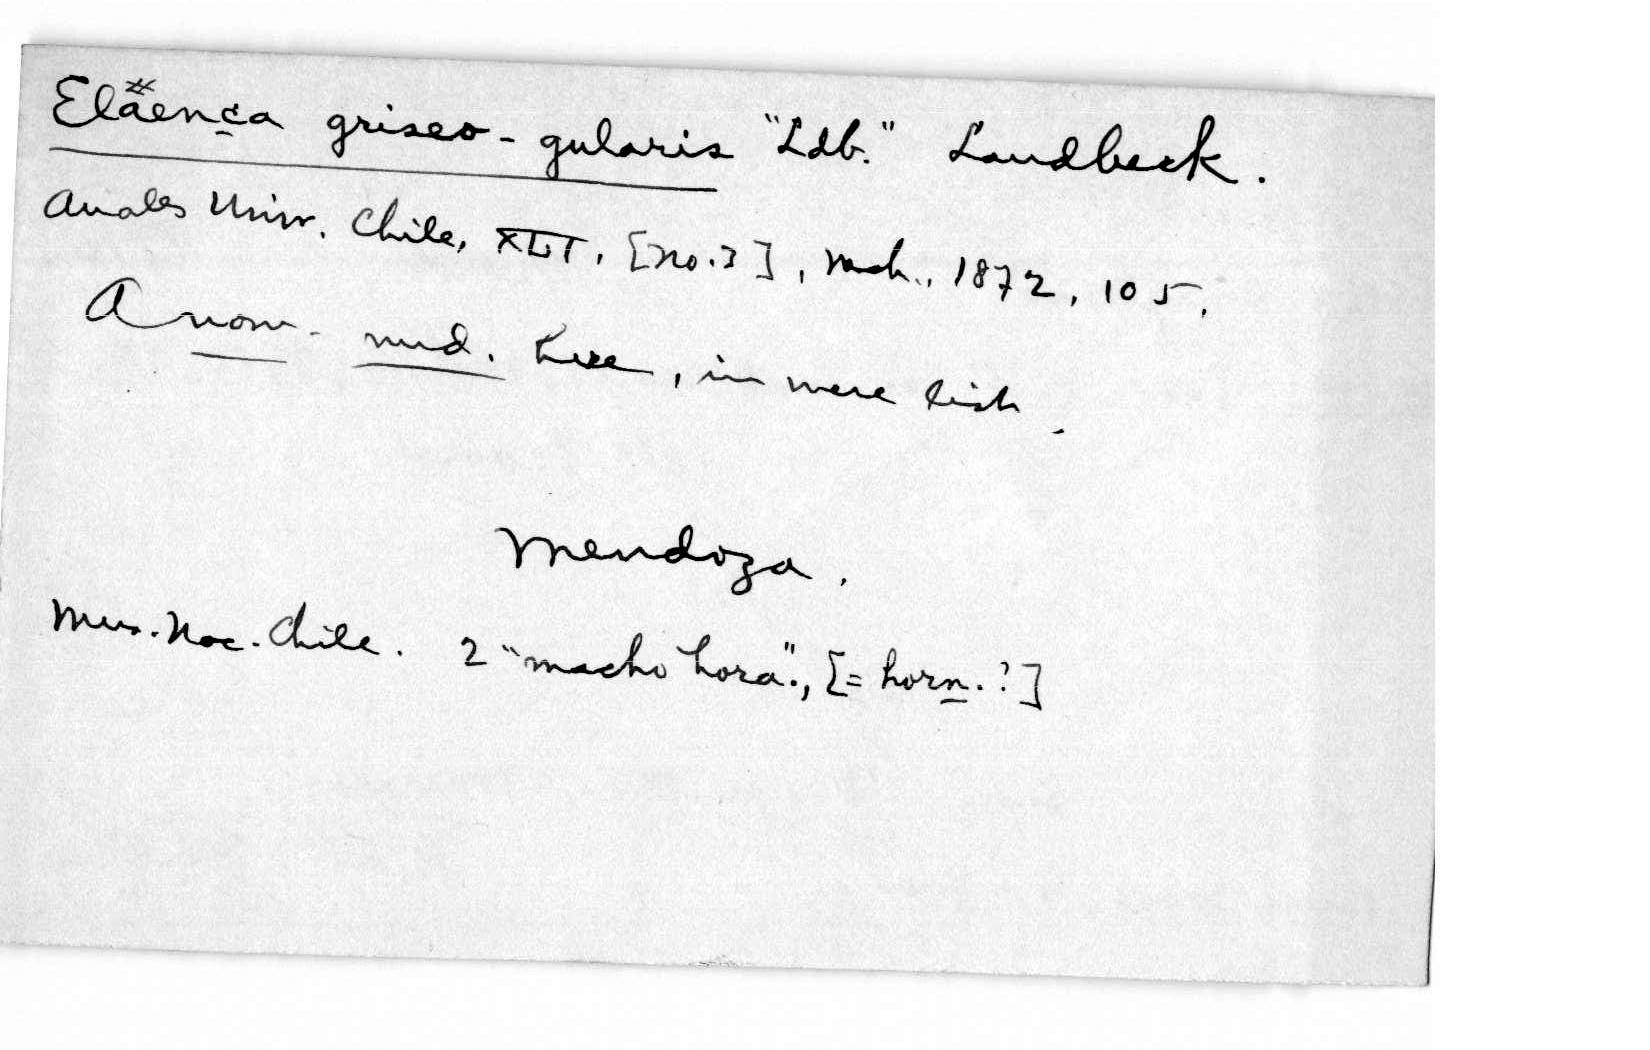 Eläenca griseo-gularis "Ldb." Landbeck.
Anales Univ. Chile, XLI, [No. 3], Mch., 1872, 105.
A nom. nud. here, in mere list.
Mendoza.
Mus. Nac. Chile. 2 "macho hora"., [= horn.?]